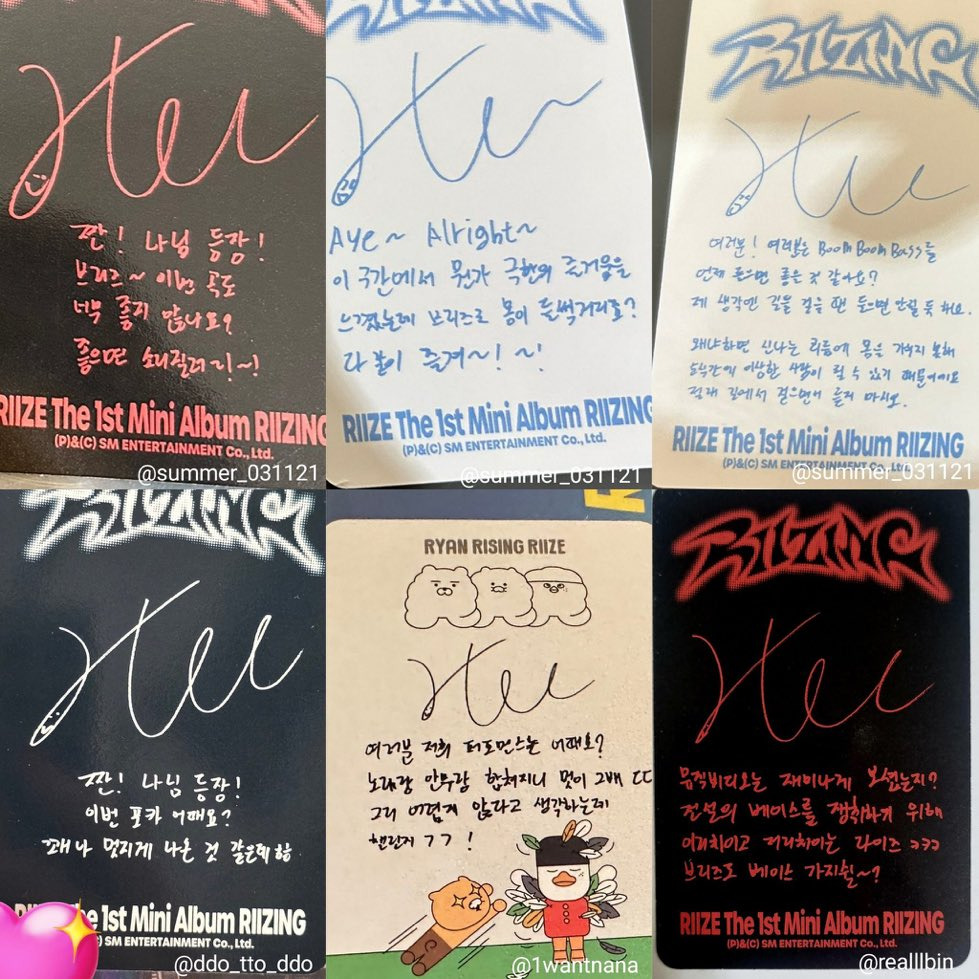 짠! 나님 등장!
브리즈~ 이번 곡도
너무 좋지 않나요?
좋으면 소리질러기~!
RIIZE The 1st Mini Album RIIZING
(P)&(C) SM ENTERTAINMENT Co., Ltd.
@summer_031121
Aye~ Alright~
이 구간에서 뭔가 극한의 즐거움을
느꼈는데 브리즈도 몸이 들썩거리죠?
다 같이 즐겨~! ~!
RIIZE The 1st Mini Album RIIZING
(P)&(C) SM ENTERTAINMENT Co., Ltd.
@summer_031121
RIIZING
여러분! 여러분은 Boom Boom Bass를
언제 들으면 좋은 것 같아요?
제 생각엔 길을 걸을 땐 들으면 안될 듯 하요.
왜냐하면 신나는 리듬에 몸을 가누지 못해
순식간에 이상한 사람이 될 수 있기 때문이에요
절대 길에서 걸으면서 듣지 마시오.
RIIZE The 1st Mini Album RIIZING
(P)&(C) SM ENTERTAINMENT Co., Ltd.
@summer_031121
RIIZING
짠! 나님 등장!
이번 포카 어때요?
꽤나 멋지게 나온 것 같은데 핳
the 1st Mini Album RIIZING
(C) SM ENTERTAINMENT Co., Ltd.
@ddo_tto_ddo
RYAN RISING RIIZE
여러분 저희 퍼포먼스는 어때요?
노래랑 안무랑 합쳐지니 멋이 그배 ㄷㄷ
그리 어렵게 않다고 생각하는데
챌린지 ㄱㄱ!
@1wantnana
RIIZING
뮤직비디오는 재미나게 보셨는지?
전설의 베이스를 쟁취하기 위해
이리치이고 저리치이는 라이즈 ㅋㅋㅋ
브리즈도 베이스 가지쉴~?
RIIZE The 1st Mini Album RIIZING
(P)&(C) SM ENTERTAINMENT Co., Ltd.
@realllbin